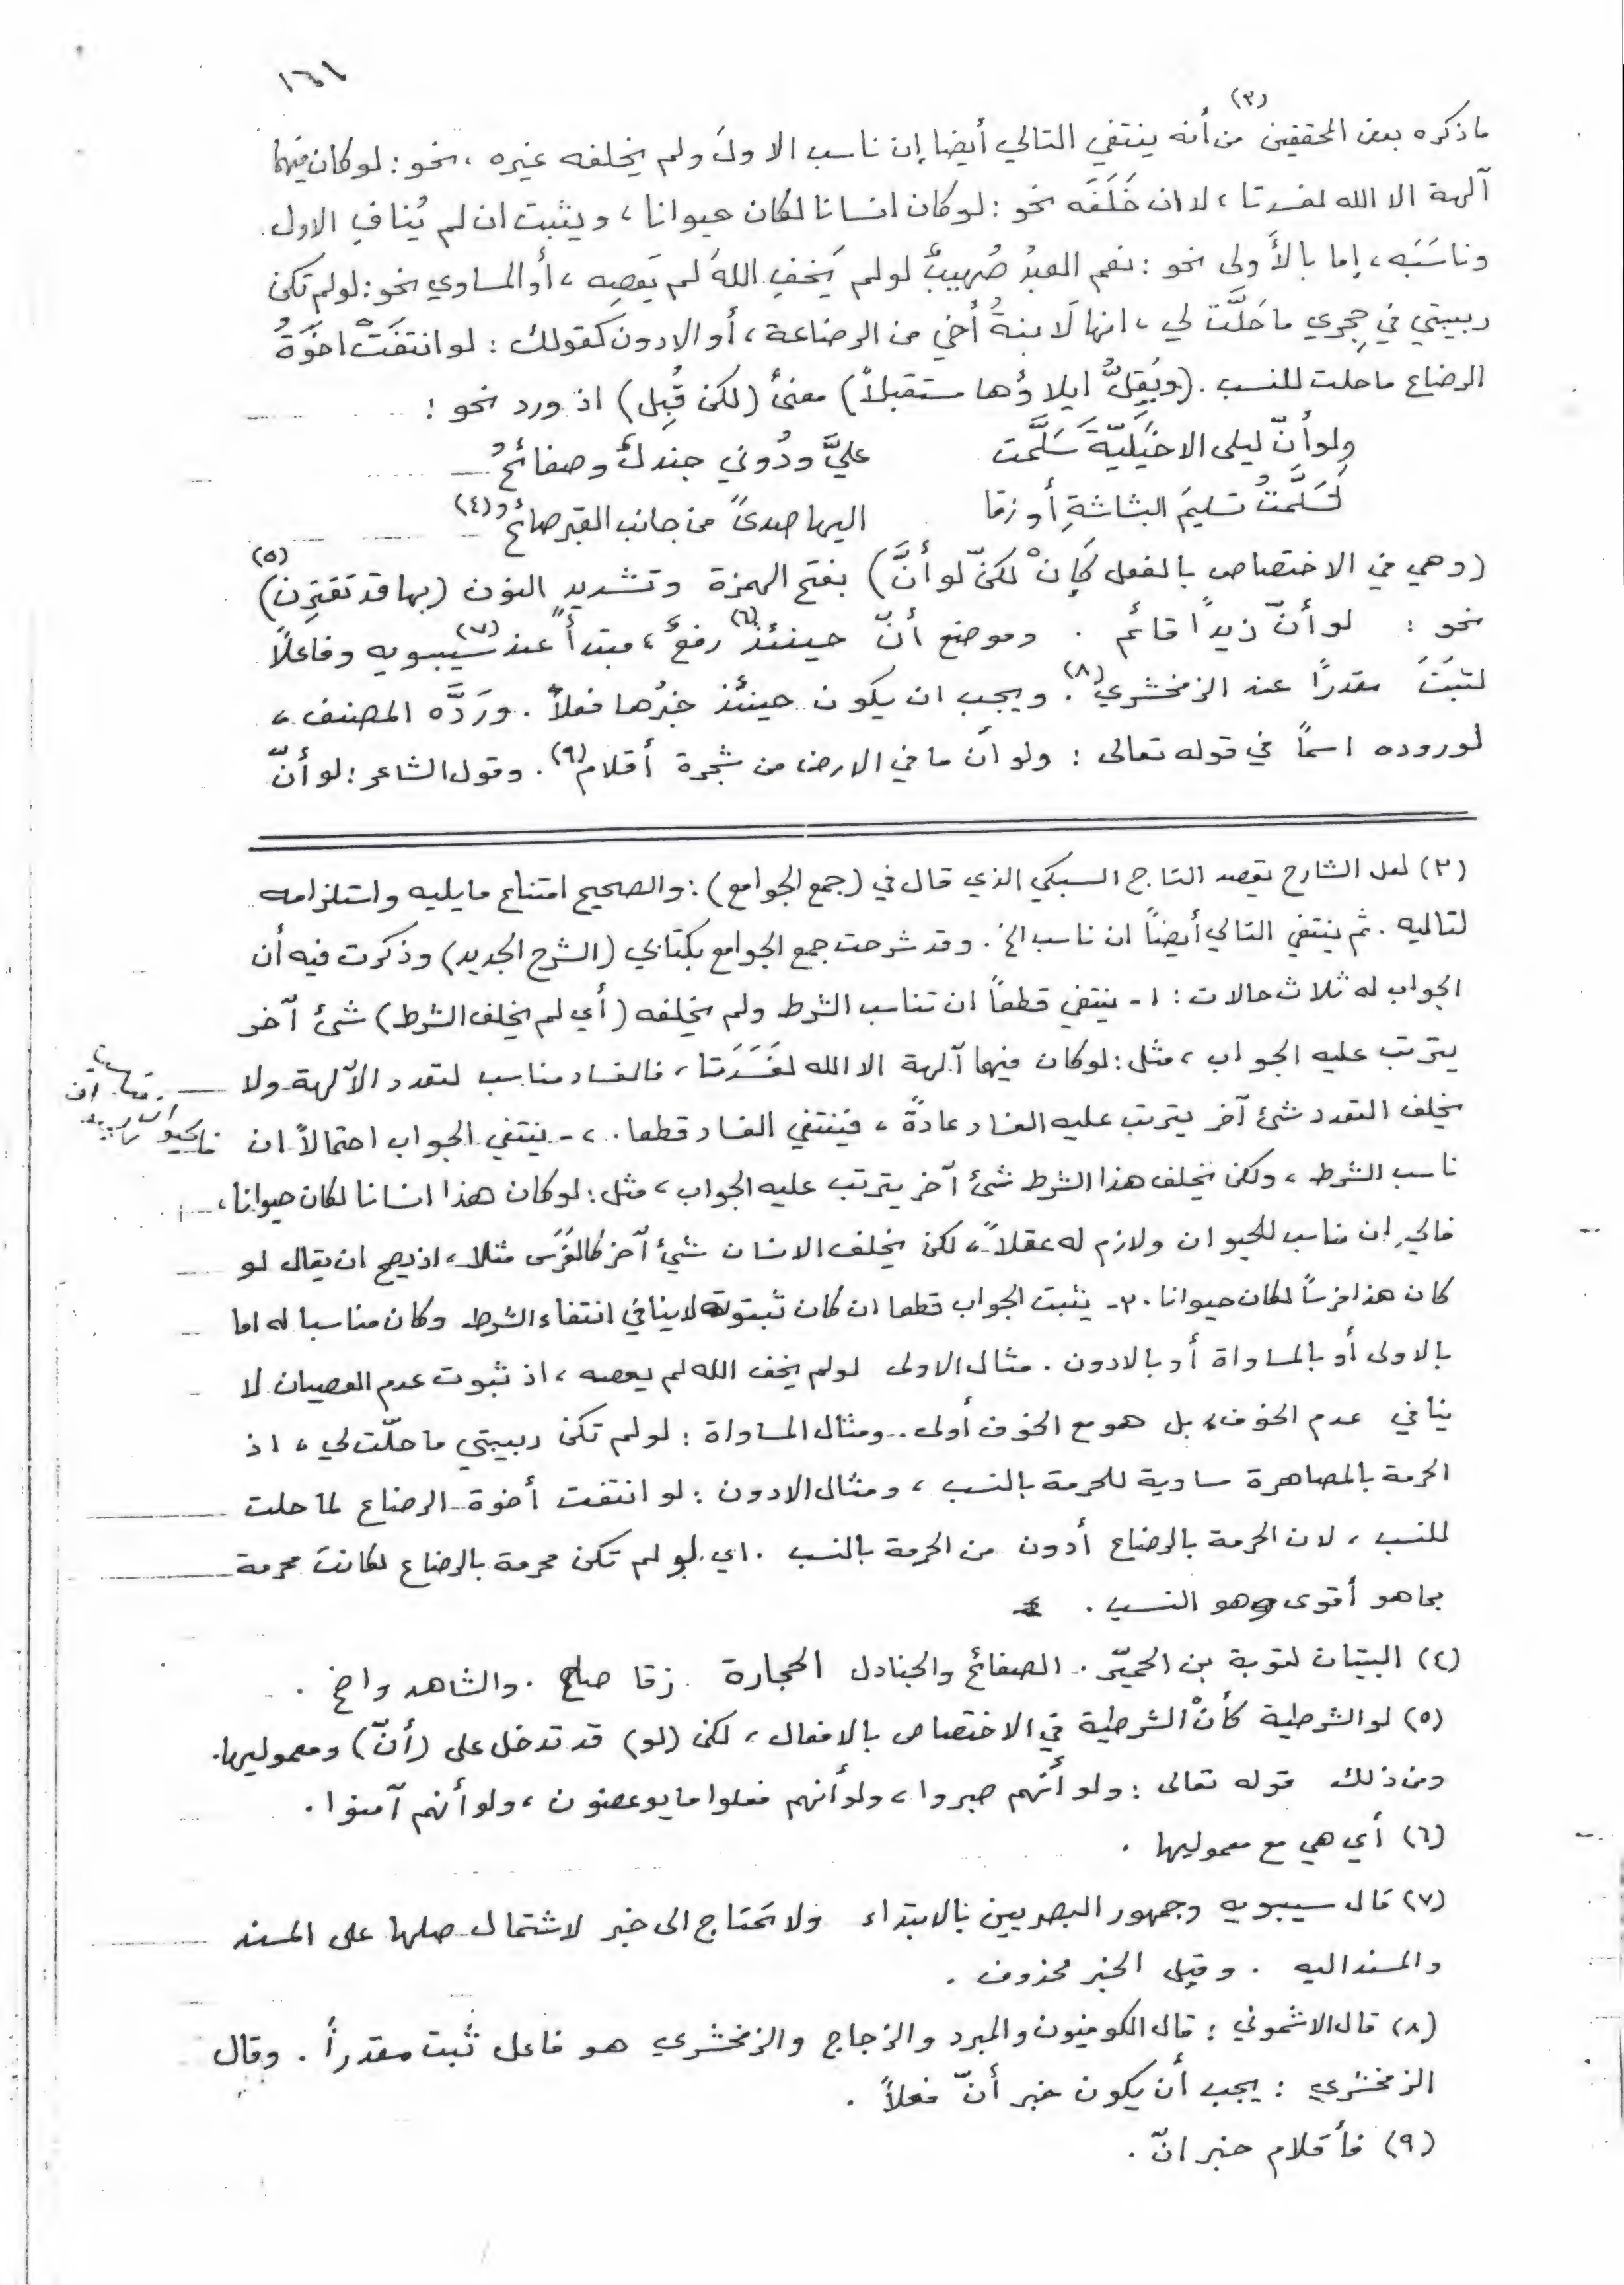 ما ذكره بعض المحققين (٣) من أنه ينتفي التالي أيضا إن ناسب الاولَ ولم يخلفه غيره ، نحو : لو كان فيهما
آلهة الا الله لفسدتا ، لا ان خَلَفَه نحو : لو كان انسانا لكان حيوانا ، ويثبت ان لم يُنافِ الاول
وناسَبَه ، إما بالأَولى نحو : نعم العبدُ صُهيبٌ لو لم يَخفِ اللهَ لم يَعصِه ، أو المساوي نحو : لو لم تكن
ربيبتي في حِجري ما حَلَّت لي ، انها لَابنةُ أخي من الرضاعة ، أو الادون كقولك : لو انتفَتْ اخوّةُ
الرضاع ما حلت للنسب . (ويُقِلُّ ايلاؤُها مستقبلاً) معنىً (لكن قُبِل) اذ ورد نحو :
ولو أنّ ليلى الاخيَليّةَ سَلَّمت عليَّ ودُوني جندلٌ وصفائحُ
لَسَلَّمتُ تسليمَ البشاشةِ أو زقا اليها صدىً من جانب القبر صائحُ (٤)
(وهي في الاختصاص بالفعل كَإِنْ لكنّ لو أنَّ) بفتح الهمزة وتشديد النون (بها قد تَقتَرِن) (٥)
نحو : لو أنّ زيداً قائم . وموضع أنّ حينئذ (٦) رفعٌ ، مبتدأً عند سيبويه (٧) وفاعلاً
لثبَتَ مقدرًا عند الزمخشري (٨) . ويجب ان يكون حينئذ خبرُها فعلاً . ورَدَّه المصنف ،
لوروده اسمًا في قوله تعالى : ولو أن ما في الارض من شجرة أقلام (٩) . وقول الشاعر : لو أنّ
(٣) لعل الشارح يقصد التاج السبكي الذي قال في (جمع الجوامع) : والصحيح امتناع ما يليه واستلزامه
لتاليه . ثم ينتفي التالي أيضاً ان ناسب الخ . وقد شرحت جمع الجوامع بكتابي (الشرح الجديد) وذكرت فيه أن
الجواب له ثلاث حالات : ١ - ينتفي قطعاً ان تناسب الشرط ولم يخلفه (أي لم يخلف الشرط) شئ آخر
يترتب عليه الجواب ، مثل : لو كان فيهما آلهة الا الله لفَسَدَتا ، فالفساد مناسب لتعدد الآلهة ولا
يخلف التعدد شئ آخر يترتب عليه الفساد عادةً ، فينتفي الفساد قطعا . ٢ - ينتفي الجواب احتمالاً ان
ناسب الشرط ، ولكن يخلف هذا الشرط شئ آخر يترتب عليه الجواب ، مثل : لو كان هذا انسانا لكان حيوانا ،
مناسب للحيوان ولازم له عقلاً ، لكن يخلف الانسان شئ آخر كالفَرَس مثلا ، اذ يصح ان يقال لو
كان هذا فرساً لكان حيوانا . ٣ - يثبت الجواب قطعا ان كان ثبوته لا ينافي انتفاء الشرط وكان مناسبا له اما
بالاولى أو بالمساواة أو بالادون . مثال الاولى لو لم يخف الله لم يعصه ، اذ ثبوت عدم العصيان لا
ينافي عدم الخوف ، بل هو مع الخوف أولى . ومثال المساواة : لو لم تكن ربيبتي ما حلّت لي ، اذ
الحرمة بالمصاهرة مساوية للحرمة بالنسب ، ومثال الادون : لو انتفت أخوة الرضاع لما حلت
للنسب ، لان الحرمة بالرضاع أدون من الحرمة بالنسب . اي لو لم تكن محرمة بالرضاع لكانت محرمة
بما هو أقوى وهو النسب .
(٤) البيتان لتوبة بن الحميّر . الصفائح والجنادل الحجارة . زقا صاح . والشاهد واضح .
(٥) لو الشرطية كأنْ الشرطية في الاختصاص بالافعال ، لكن (لو) قد تدخل على (أنّ) ومعموليها.
ومن ذلك قوله تعالى : ولو أنهم صبروا ، ولو أنهم فعلوا ما يوعضون ، ولو أنهم آمنوا .
(٦) أي هي مع معموليها .
(٧) قال سيبويه وجمهور البصريين بالابتداء ولا تحتاج الى خبر لاشتمال صلها على المسند
والمسند اليه . وقيل الخبر محذوف .
(٨) قال الاشموني : قال الكوفيون والمبرد والزجاج والزمخشري هو فاعل ثبت مقدراً . وقال
الزمخشري : يجب أن يكون خبر أنّ فعلاً .
(٩) فأقلام خبر انّ .